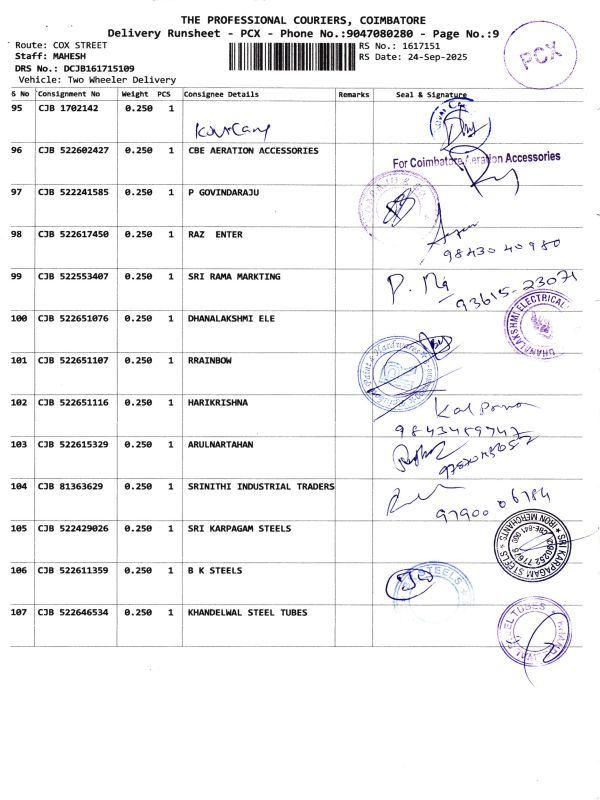 THE PROFESSIONAL COURIERS, COIMBATORE
Delivery Runsheet - PCX - Phone No.:9047080280 - Page No.:9
Route: COX STREET
RS No.: 1617151
Staff: MAHESH
RS Date: 24-Sep-2025
DRS No.: DCJB161715109
Vehicle: Two Wheeler Delivery
PCX
S No Consignment No Weight PCS Consignee Details Remarks Seal & Signature
95 CJB 1702142 0.250 1
96 CJB 522602427 0.250 1 CBE AERATION ACCESSORIES
For Coimbatore Aeration Accessories
97 CJB 522241585 0.250 1 P GOVINDARAJU
98 CJB 522617450 0.250 1 RAZ ENTER
98430 40980
99 CJB 522553407 0.250 1 SRI RAMA MARKTING
93615-23071
100 CJB 522651076 0.250 1 DHANALAKSHMI ELE
DHANALAKSHMI ELECTRICAL
101 CJB 522651107 0.250 1 RRAINBOW
Paint & Hardwares
102 CJB 522651116 0.250 1 HARIKRISHNA
Kalpana
9843459747
103 CJB 522615329 0.250 1 ARULNARTAHAN
104 CJB 81363629 0.250 1 SRINITHI INDUSTRIAL TRADERS
97900 06784
105 CJB 522429026 0.250 1 SRI KARPAGAM STEELS
SRI KARPAGAM STEELS
IRON MERCHANTS
106 CJB 522611359 0.250 1 B K STEELS
STEELS
107 CJB 522646534 0.250 1 KHANDELWAL STEEL TUBES